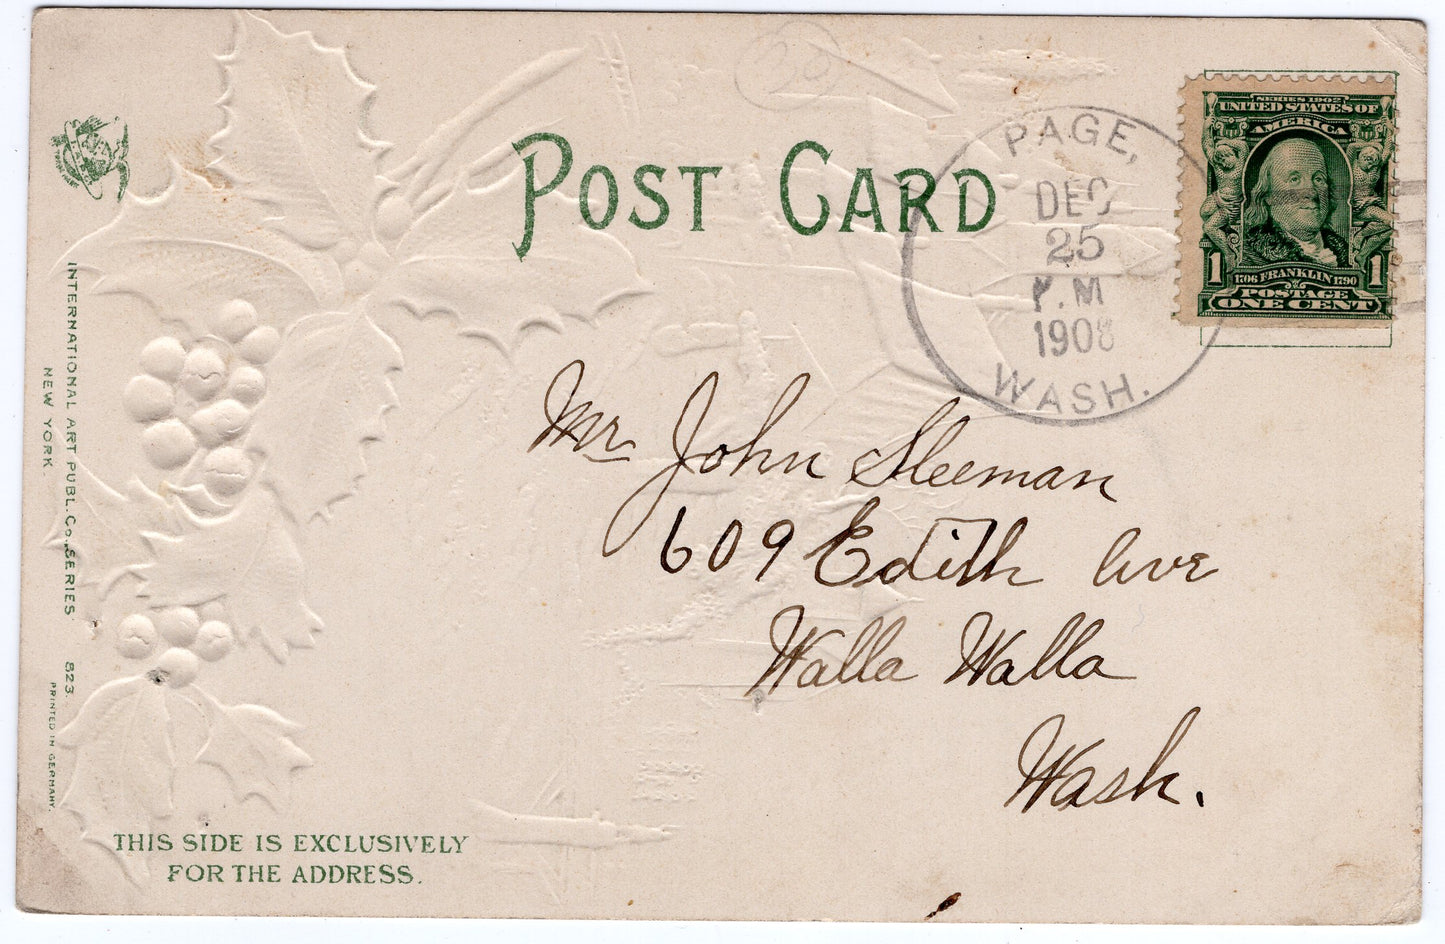 30
POST CARD
PAGE,
DEC
25
P.M
1908
WASH.
SERIES 1902
UNITED STATES OF
AMERICA
1706 FRANKLIN 1790
1 1
POSTAGE
ONE CENT
Mr John Sleeman
609 Edith Ave
Walla Walla
Wash.
INTERNATIONAL ART PUBL. CO. SERIES 823.
NEW YORK.
PRINTED IN GERMANY.
THIS SIDE IS EXCLUSIVELY
FOR THE ADDRESS.